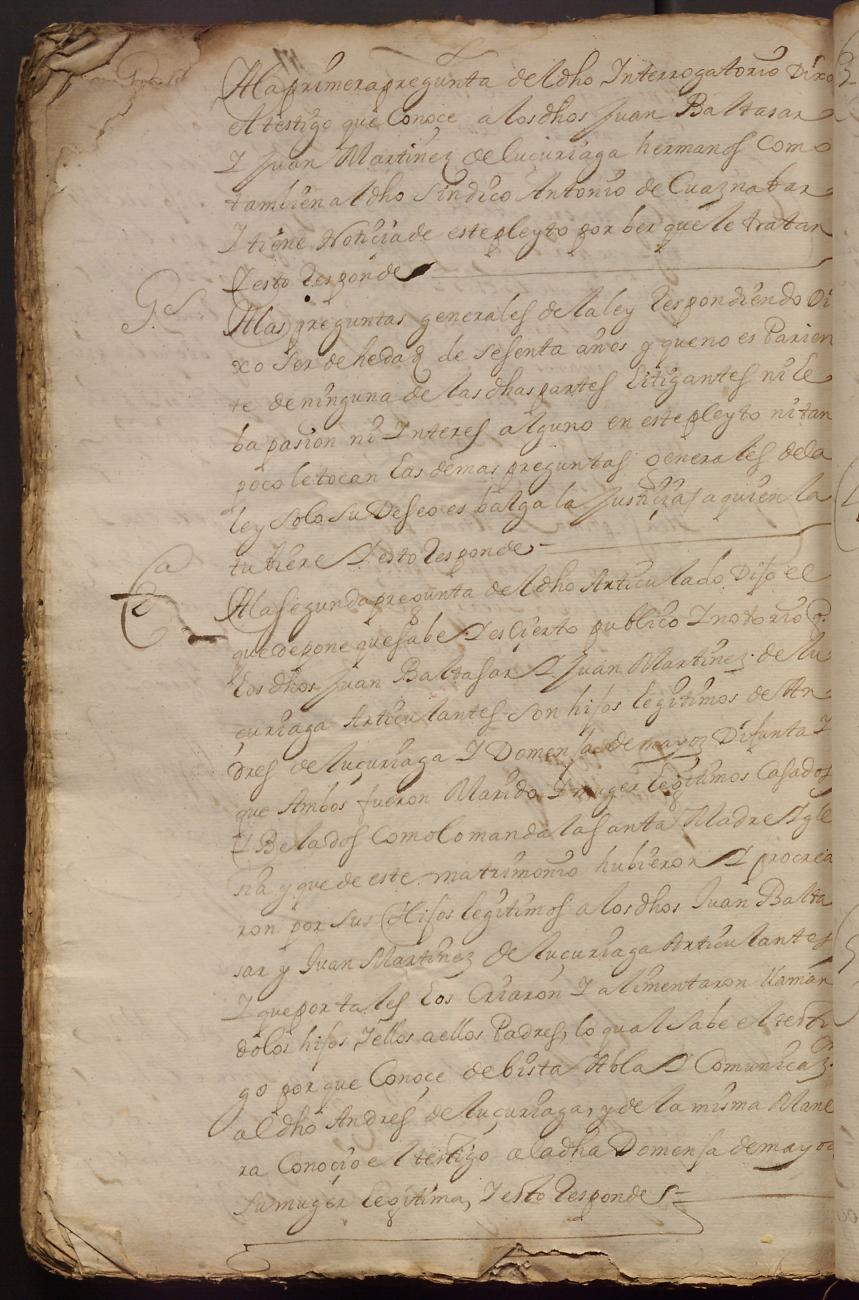 A la primera pregunta del dho Interrogatorio Dixo
el testigo que Conoce a los dhos Juan Baltasar
Y Juan Martinez de lucuriaga hermanos Como
tambien al dho Sindico Antonio de Cuaznabar
Y tiene Noticia de este pleyto por ber que le tratan
Y esto Responde
Gs. A las preguntas generales de la ley Respondiendo Di
xo Ser de hedad de sesenta años y que no es Parien
te de ninguna de las dhas partes Litigantes ni le
ba pasion ni Interes alguno en este pleyto ni tan
poco le tocan Las demas preguntas generales de la
ley Solo su Deseo es balga la Justicia a quien la
tubiere Y esto Responde
2a A la segunda pregunta del dho Articulado Dijo el
que depone que sabe Y es Cierto publico Y notorio q.
Los dhos Juan Baltasar Y Juan Martinez de lu
curiaga Articulantes son hijos legitimos de An
dres de lucuriaga Y Domensa de mayoz Difunta Y
que Ambos fueron Marido Y muger legitimos Casados
Y Belados Como lo manda la santa Madre Ygle
sia y que de este matrimonio hubieron Y procrea
ron por sus Hijos legitimos a los dhos Juan Balta
sar y Juan Martinez de lucuriaga Articulantes
Y que por tales Los Criaron Y alimentaron llaman
dolos hijos Y ellos a ellos Padres, lo qual sabe el testi
go por que Conoce de bista Abla Y Comunicaz.on
al dho Andres de lucuriaga, y de la misma Mane
ra Conocio el testigo a la dha Domensa de mayoz
su muger legitima, Y esto Responde